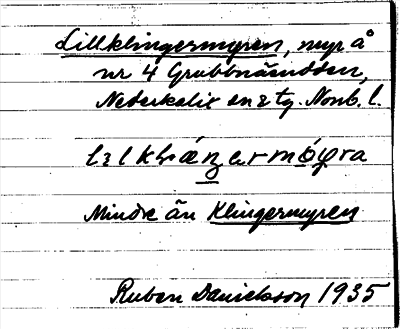 Lillklingermyren, myr å
nr 4 Grubbnäsudden,
Nederkalix sn & tg. Nonb. l.
Mindre än Klingermyren
Ruben Danielsson 1935